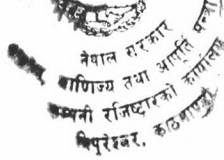 नेपाल सरकार
वाणिज्य तथा आपूर्ति
कम्पनी रजिष्ट्रारको कार्यालय
त्रिपुरेश्वर, काठमाण्डौ